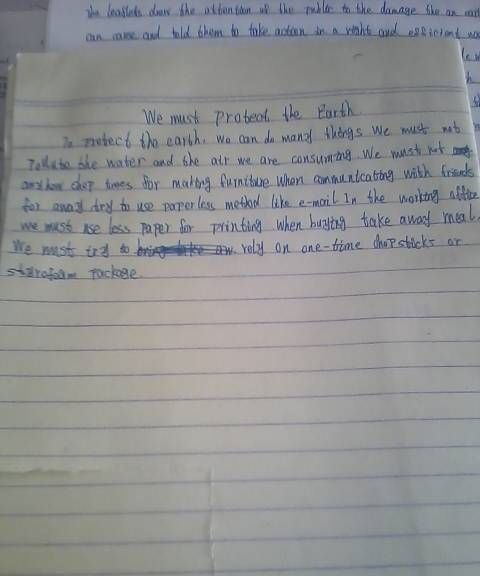 The leaflets draw the attention of the public to the damage the an
can cause and told them to take action in a right and efficient
We must Protect the Earth
To protect the earth. We can do many things We must not
Pollute the water and the air we are consuming. We must not
chop trees for making furniture When communicating with friends
for away try to use paperless method like e-mail In the working office
we must use less paper for printing when buying take away meal.
We must try to rely on one-time chopsticks or
starofoam package